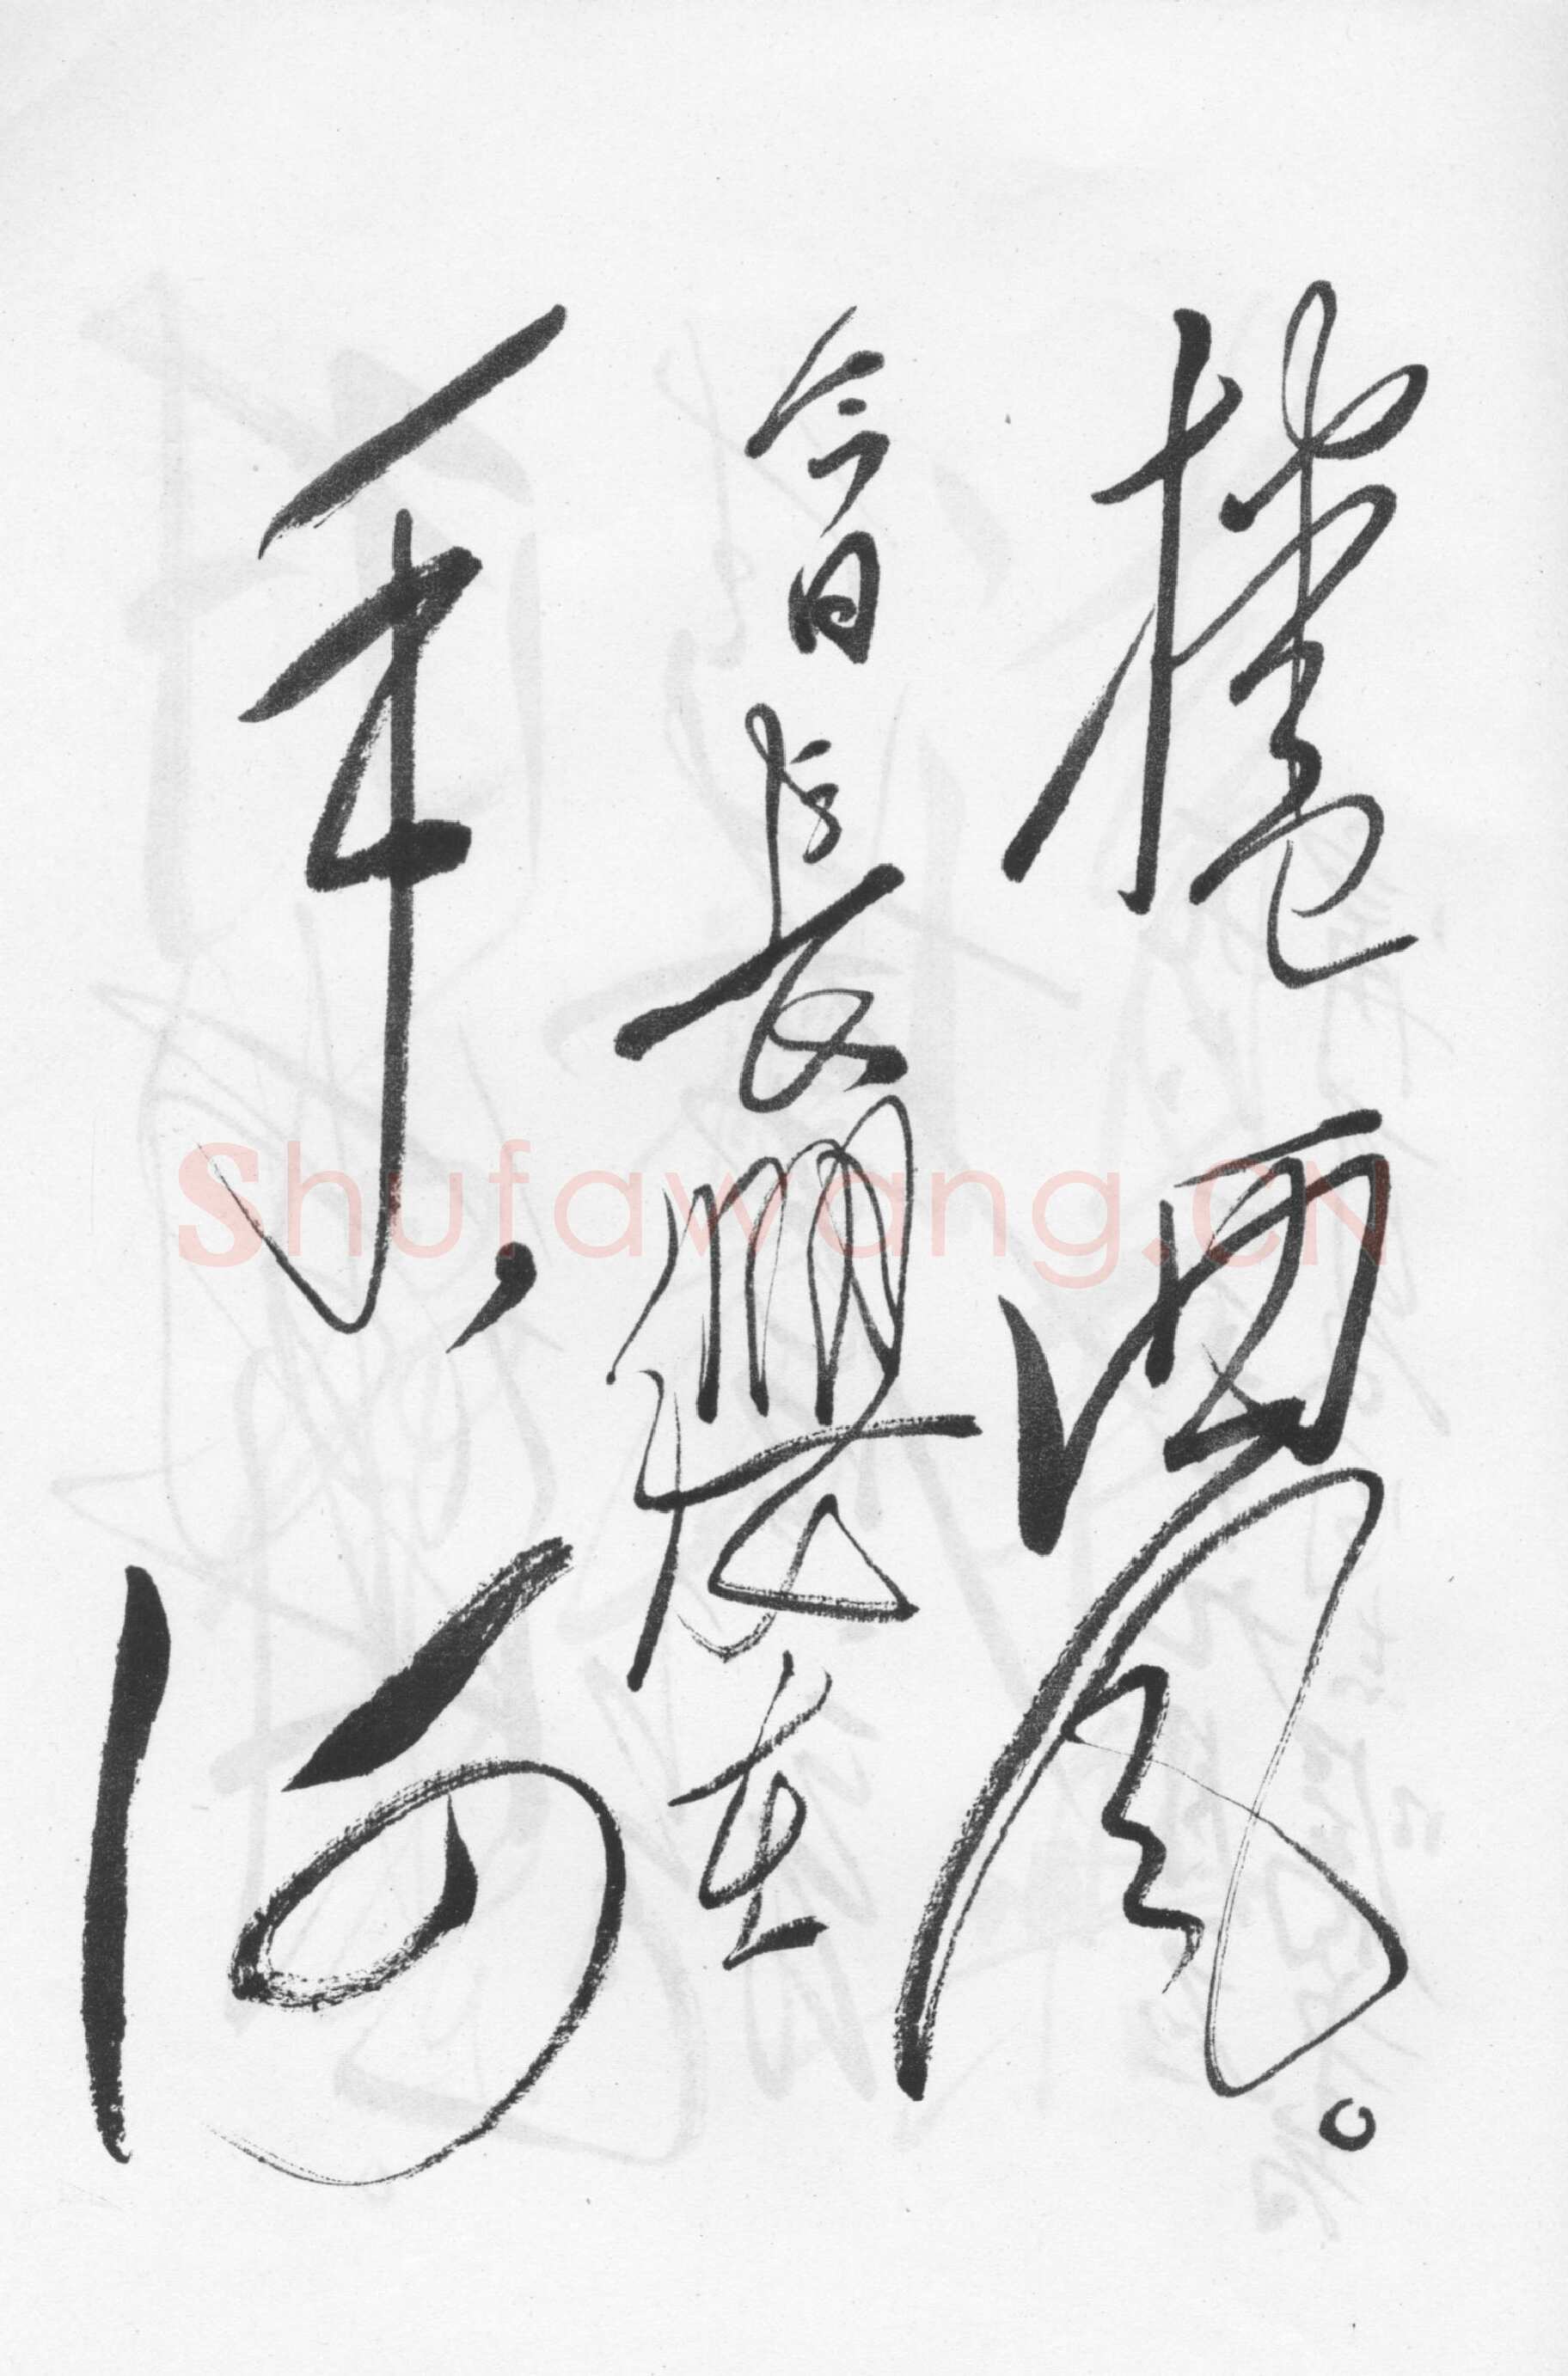 捲西风。
今日长缨在
手，何
Shufawang.CN